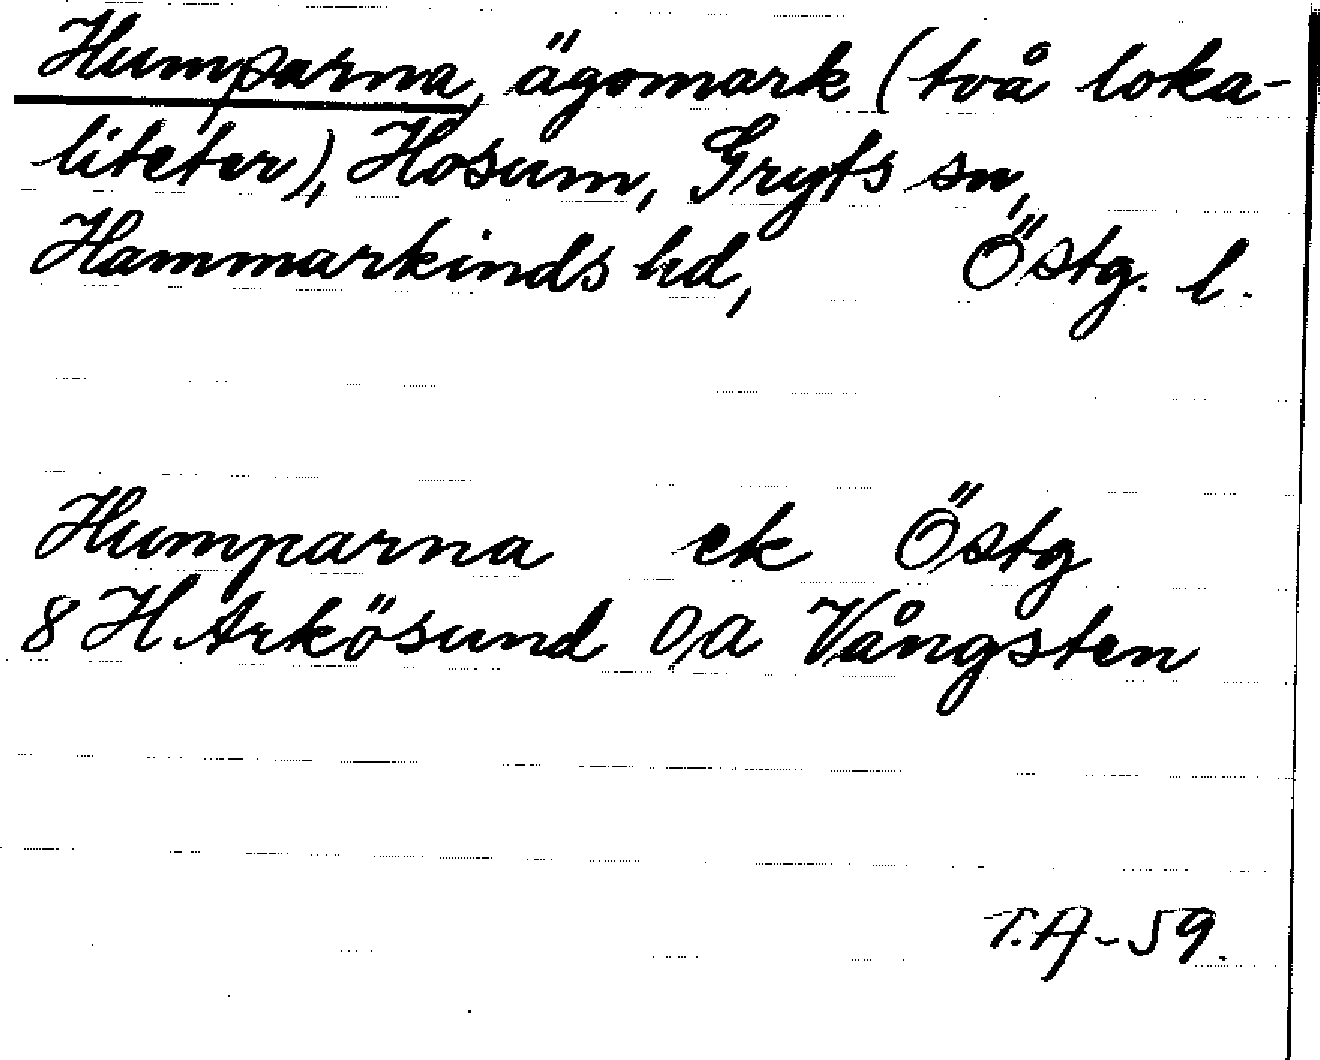 Humparna, ägomark (två loka-
liteter), Hosum, Gryts sn,
Hammarkinds hd, Östg. l.
Humparna ek Östg
8 H Arkösund O,a Vångsten
T.A-59.